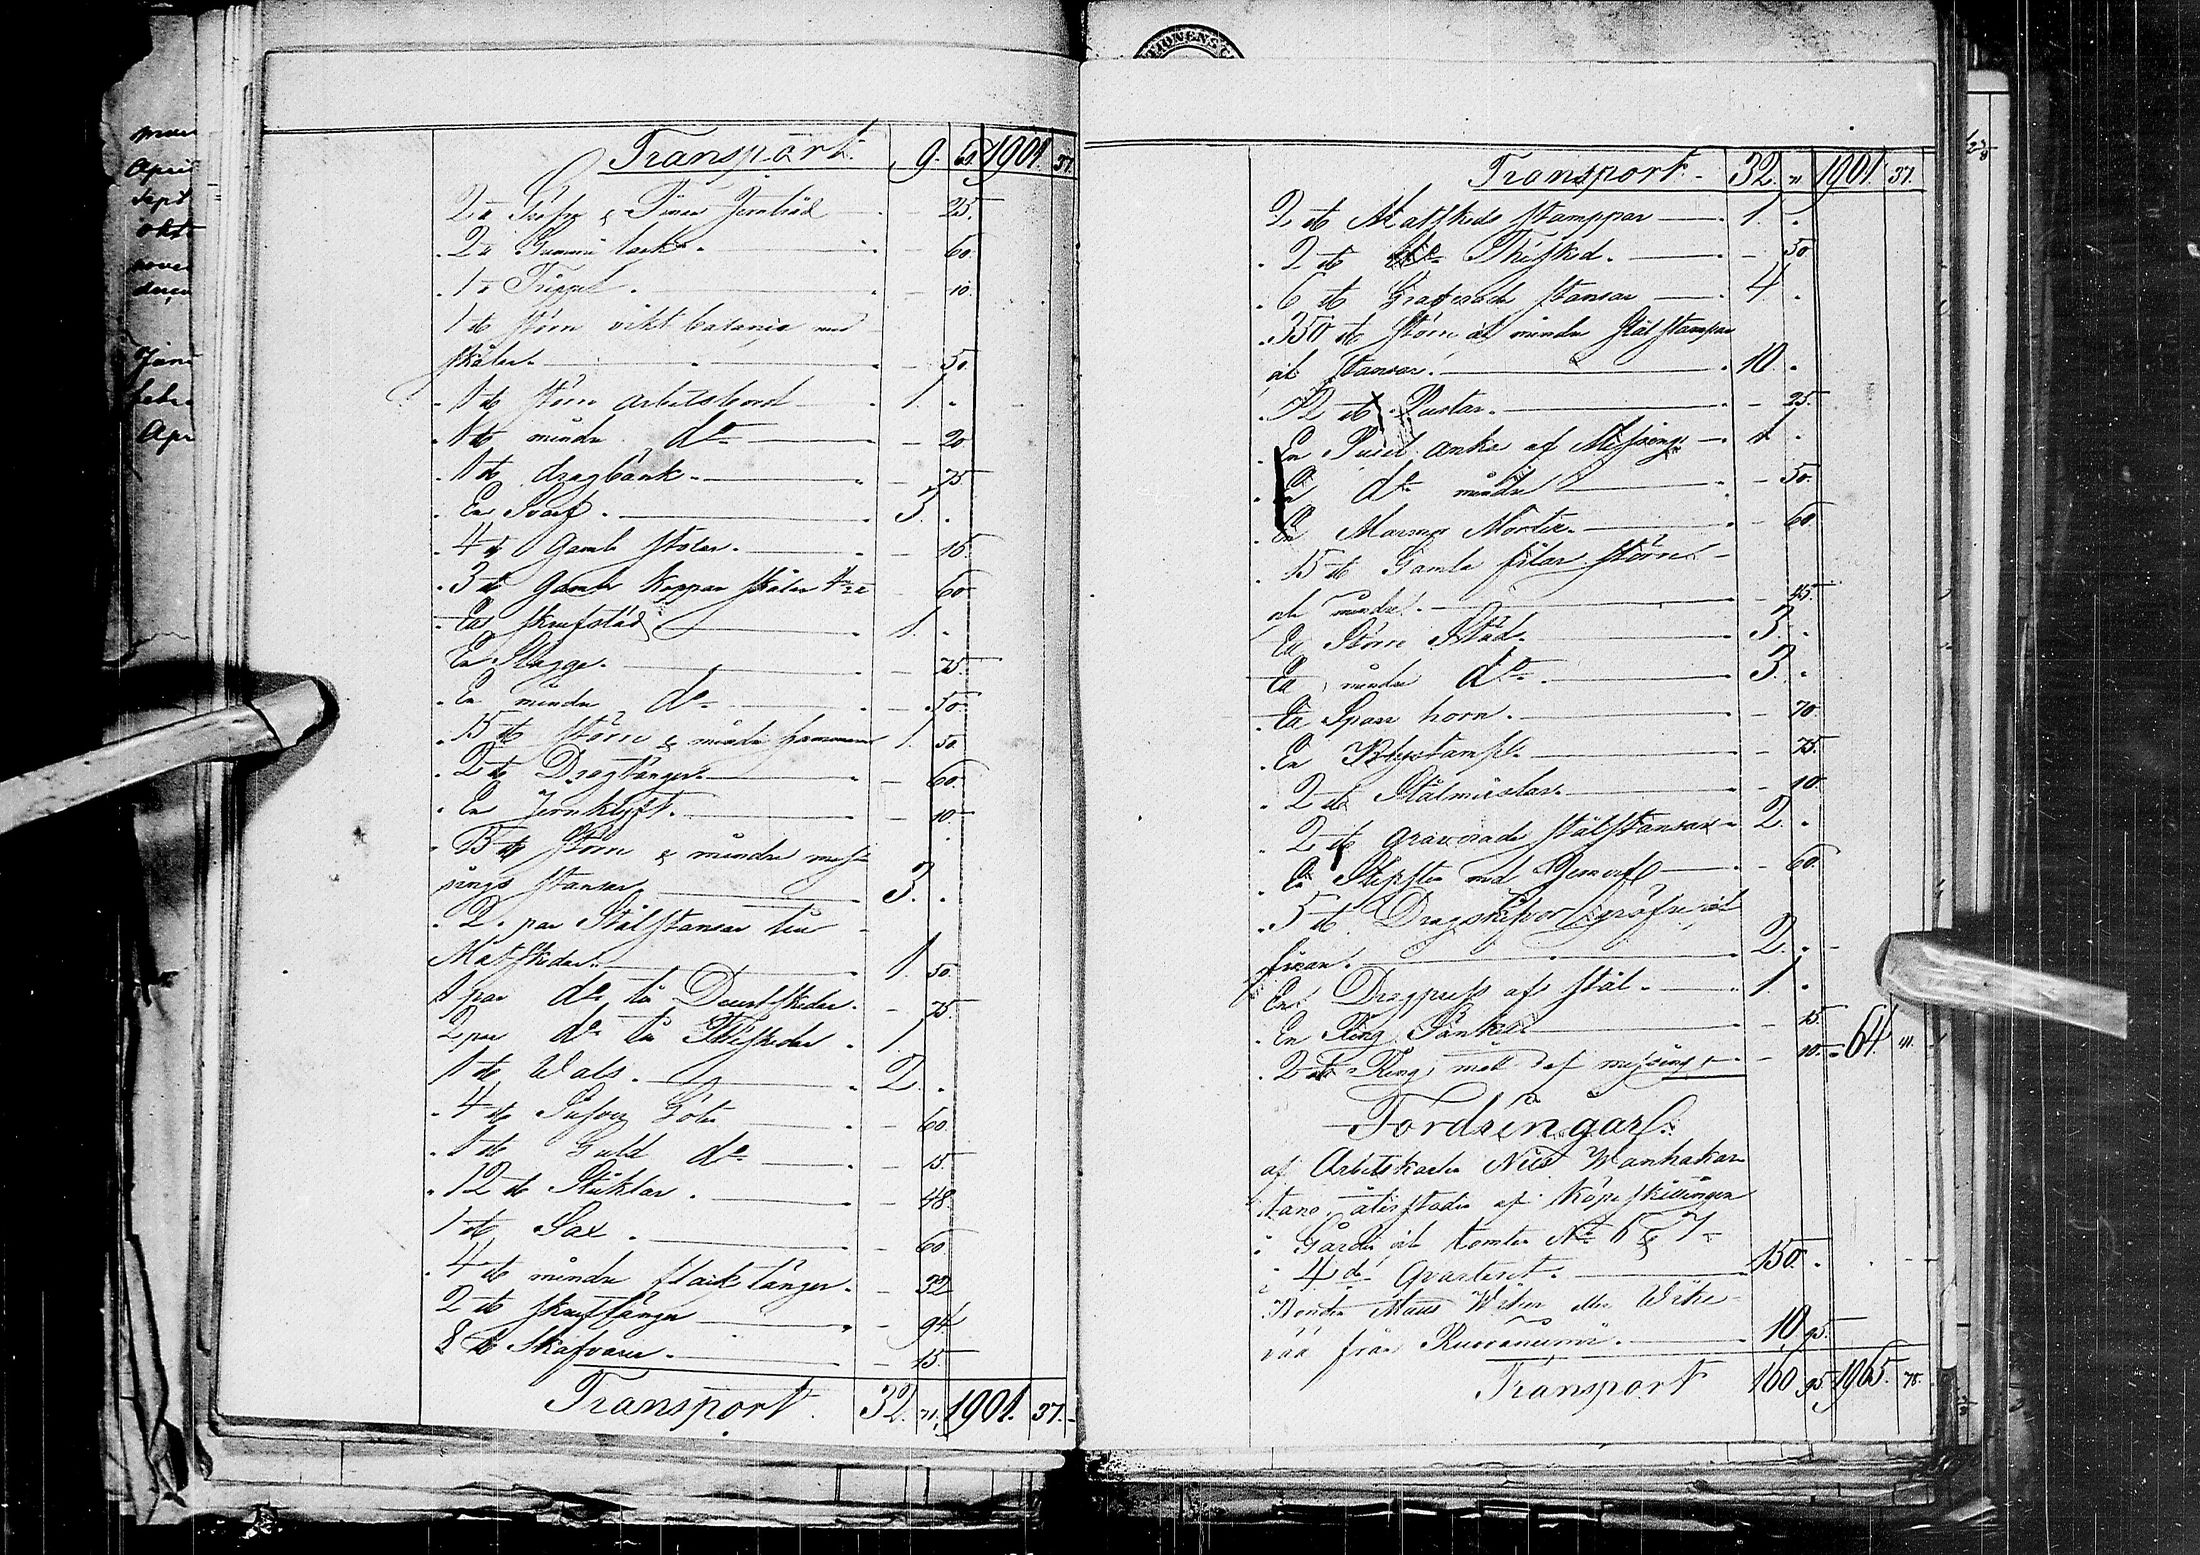 TIONENS
Transport. 9. 69. 1901. 37.
2 a Gröfre & Finare Jerntråd — 25.
2 a Gummi lack — 60.
1 a Trippel — 10.
1 st större vikt balanse med
skålar. — 50.
1 st större arbetsbord 1. "
1 st mindre do — 20
1 st dragbänk — 75
En Svarf. 3. "
4 st Gamla stolar. — 16.
3 st Gamla Koppar skålar — 60
Ett skrufstäd 1. "
En Slägga. — 75.
En mindre do — 50
15 st större & mindre hammare 1. 50.
2 st Dragtänger — 60.
En Jernklyft. — 10
15 st större & mindre mess-
ings stansar 3. "
2. par Stålstansar till
Matskedar 1. 50.
1 par do till Dusörtskedar — 75
2 par do till Théskedar 1.
1 st Wals. 2. "
4 st Silfver Göter — 60
1 st Guld do — 15
12 st Sticklar. — 48.
1 st Sax. — 60
4 st mindre flacktänger. — 32
2 st skruftänger — 94
8 st Skafvare. — 15.
Transport. 32. 71. 1901. 37.
Transport. 32. 71 1901. 37.
2 st Matskeds stamppar 1. "
2 st Thésked. — 50
6 st Graverade stansar 4 "
350 st större och mindre stålstampar
och stansar. 10. "
12 st Pustar. — 25.
En anka af Messing 1 "
En do mindre — 50.
En Marmor Mortel. — 60.
15 st Gamla filar större
och mindre. — 45.
Ett Större Städ. 3. "
Ett mindre do 3. "
Ett Sparr horn. — 70.
En Blystampel — 75.
2 st Stålmüslar. — 10.
2 st Graverade stålstansar 2. "
En Slipsten med — 60.
5 st Dragskifvor gröfre och
finare. 2. "
En Dragpress af stål. 1. "
En Ring — 15.
2 st Ring mått af messing — 10. 64. 41.
Fordringar.
af Arbetskarlen Nils Wanhakar-
tano återstoden af Köpeskillingen
i Gården och tomten No 6 & 7
i 4de Qvarteret. 150. "
Bonden eller
från Ruovaniemi. 10 95.
Transport 160 95 1965. 78.